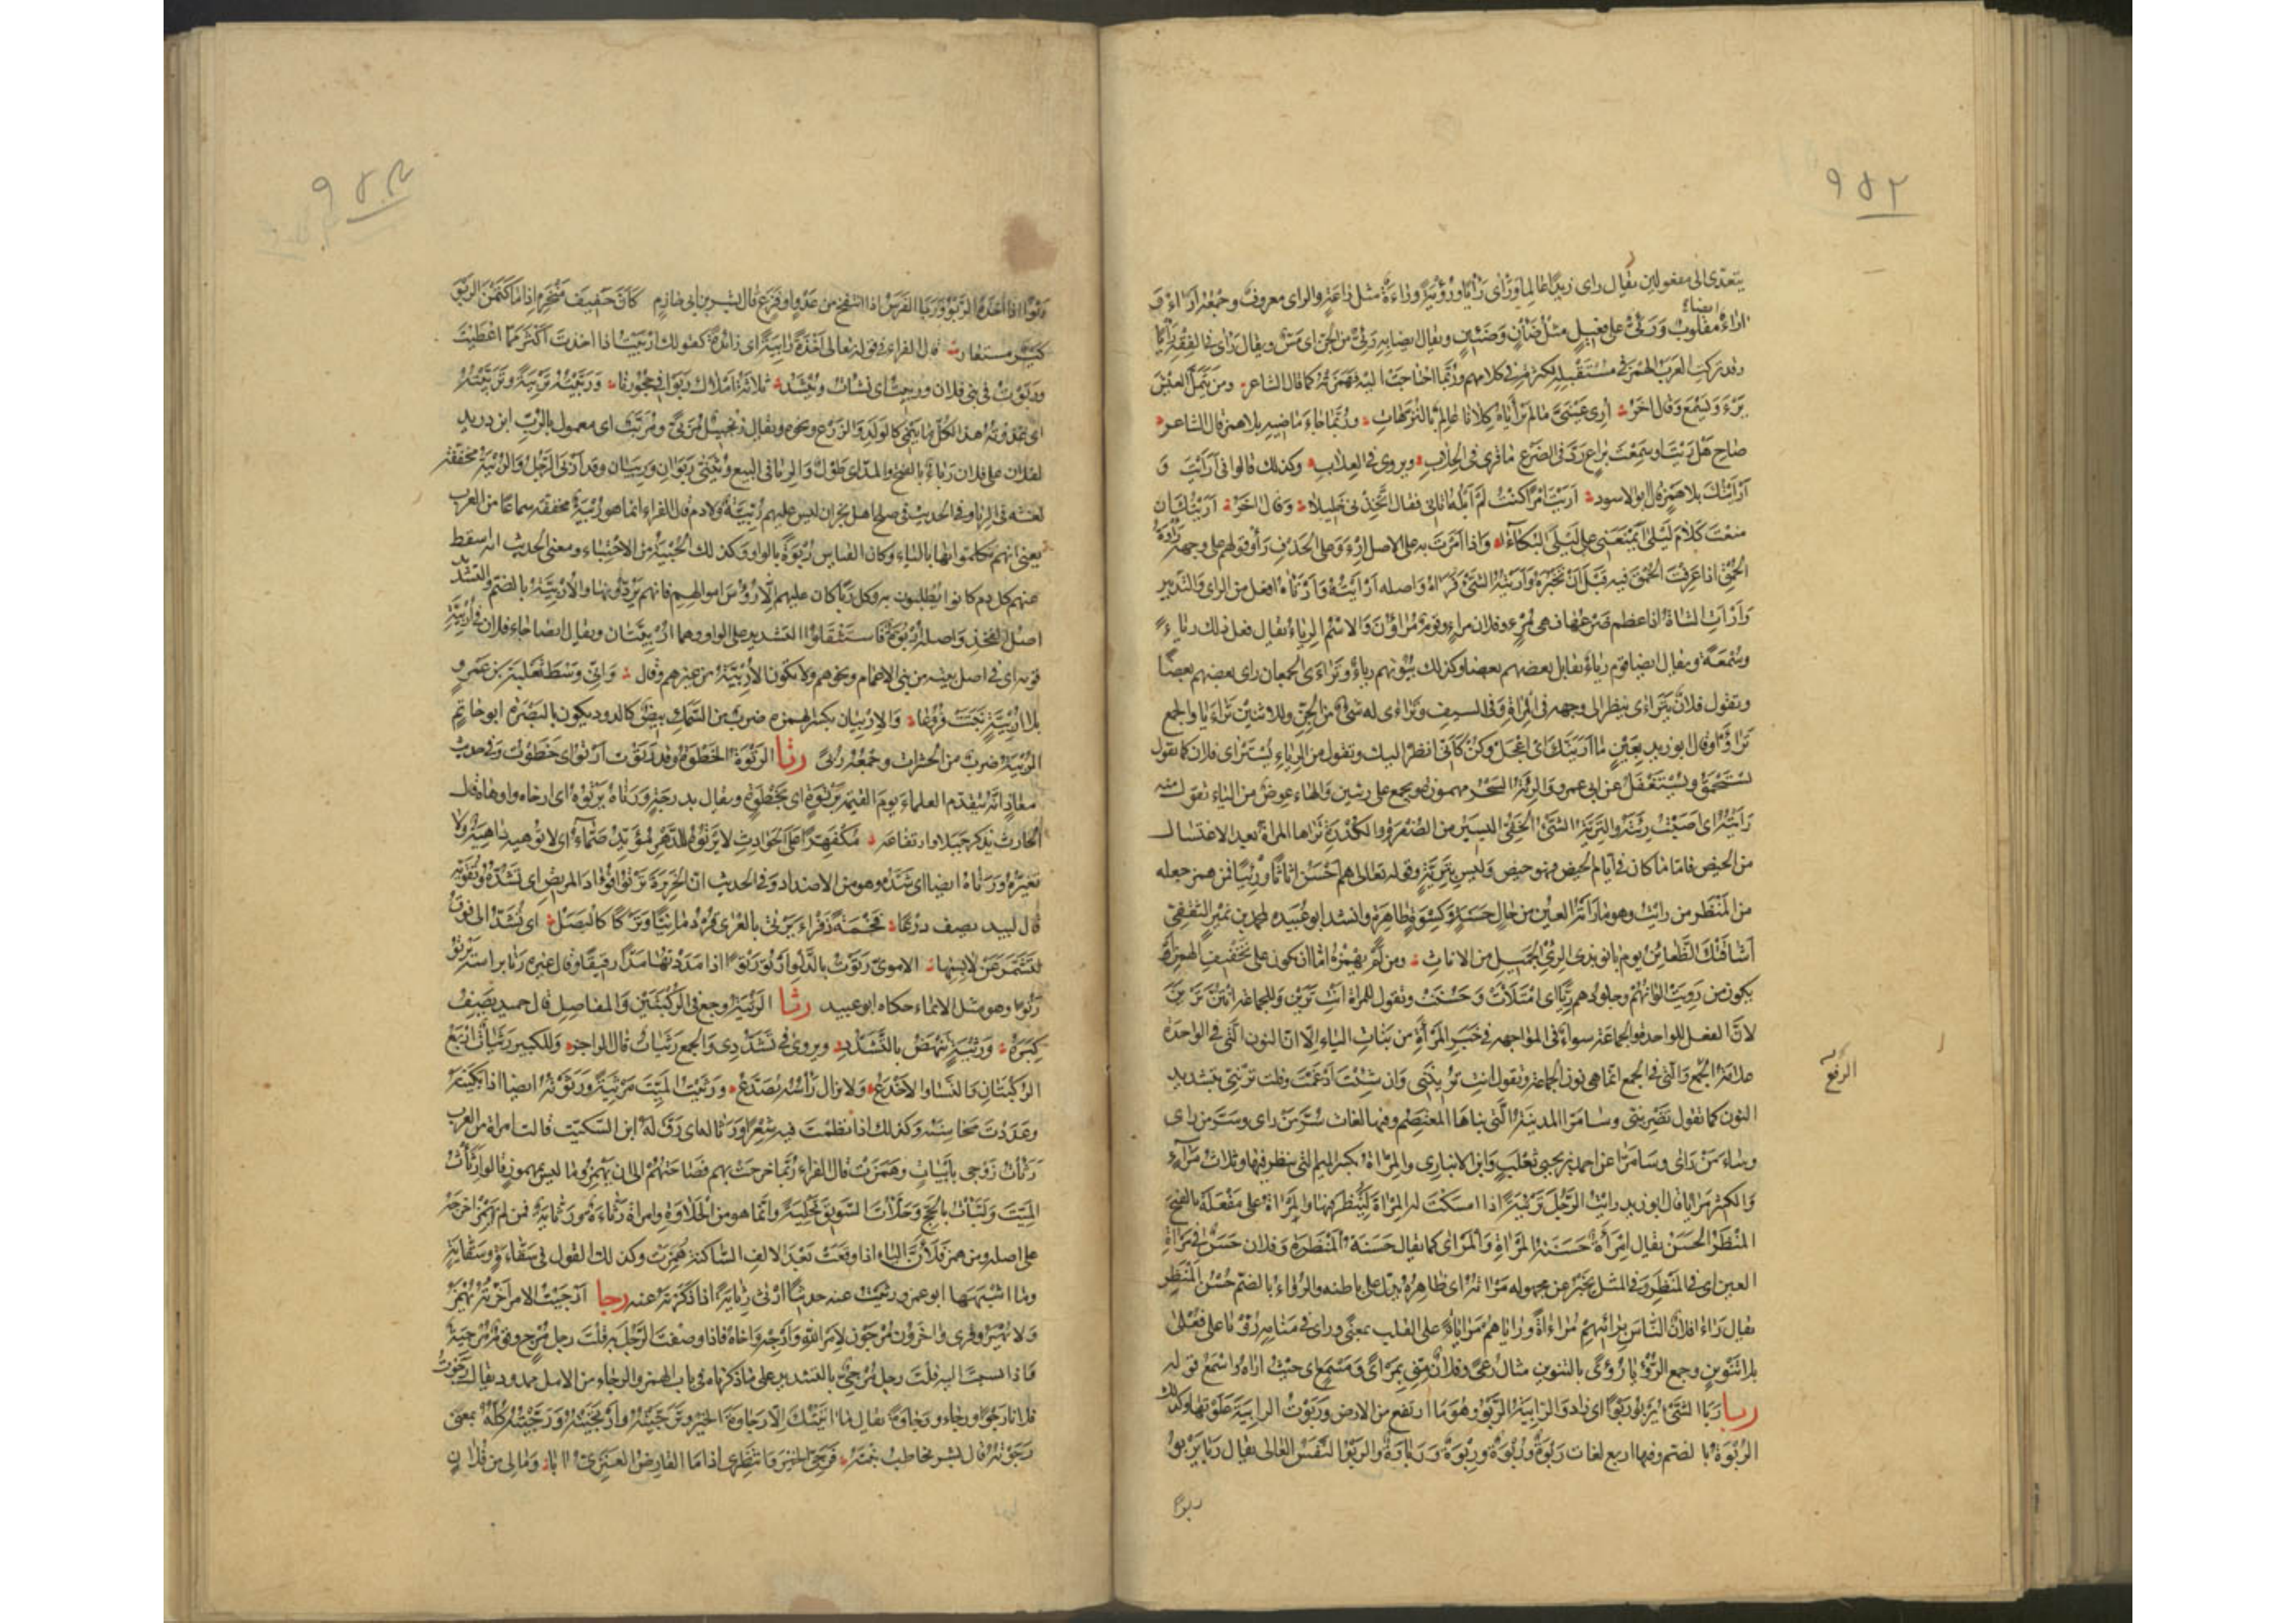 ٩٥٢
يتعدّى الى مفعولين يقال راى زيدا عالما وَرَأى رَأْيًا وَرُؤْيَةً وَرَاءَةً مثل رَاعَةٍ والراى معروف وجمعه اَرْاءٌ وَ
ايضا
اراءٌ مقلوب وَرَئىٌّ على فعيل مثل ضَأْنٍ وَضَئِينٍ ويقال ايضا به رَئىٌّ من الجن اى مَسٌّ ويقال رَاى فى الفقه رَأْيًا
وقد تركت العرب الهمز فى مستقبله لكثرته فى كلامهم وربّما احتاجت اليه فهمزته كما قال الشاعر ومن يَتَمَلَّ العيش
يَرْءَ وَيَسْمَع وقال اخر أُرِى عَيْنَىَّ مالم تَرْأَياهُ كِلانا عالِمٌ بالتُرَّهاتِ وربّما جاءَ ماضيه بلا همز قال الشاعر
صاح هَلْ رَيْتَ او سَمِعْتَ بِراعٍ رَدَّ فى الضَرْعِ ما قرى فى الحِلابِ ويروى فى العِلابِ وكذلك قالوا فى أَرَأَيْتَ وَ
أَرَأَيْتَكَ بلا همز قال ابو الاسود أَرَيْتَ امْرَأً كُنْتُ لَمْ أَبْلُهُ اتانى فقال اتَّخِذْنى خَليلا وَقال اخر أَرَيْتَكَ ان
منعْتَ كَلامَ لَيْلى أَتَمْنَعُنى على لَيْلَى البُكاءَ واذا اَمَرْتَ به على الاصل ارْءَ وَعلى الحذف رَ وقولهم على وجهه رَأْوَةُ
الحُمْقِ اذا عَرَفْتَ الحُمْقَ فيه قَبْلَ أَنْ تَخْبُرَهُ وأَرَيْتُهُ الشئَ فَرَآهُ واصله أَرْأَيْتُهُ وَارْتَآهُ افتعل من الراى والتدبير
وَأَرْأَتِ الشاةُ اذا عظم ضرعها فهى مُرْءٍ وفلان مراءٍ وقوم مُراؤُنَ والاسْمُ الرِياءُ يقال فعل ذلك رِياءً
وسُمْعَةً ويقال ايضا قوم رِياءٌ يقابل بعضهم بعضا وكذلك بيُوتهم رِياءٌ وتَراءَى الجمعان راى بعضهم بعضًا
وتقول فلانٌ يَتَراءَى ينظر الى وجهه فى المرآةِ وَفى السيف وتَراءَى له شئٌ من الجنّ وللاثنين تَراءَيا وللجمع
تَراءَوْا وقال ابو زيد بِعَيْنٍ ما أَرَيَنَّكَ اى اعْجَلْ وكُنْ كَأَنّى انظر اليك وتقول من الرِياءِ يُسْتَرْأى فلان كما تقول
يُسْتَحْمَقُ ويُسْتَعْقَلُ عن ابى عمرو والرِئَةُ السَحْرُ مهموزة ويجمع على رِئين والهاء عِوَضٌ من الياء تقول منه
رَأَيْتُهُ اى اَصَبْتُ رِئَتَهُ والتَرِيَّةُ الشئُ الخَفِىُّ اليسير من الصُفرةِ والكُدْرةِ تَراها المرأة بعد الاغتسال
من الحيض فامّا ما كان فى اَيّام الحيض فهو حيض وَليس بِتَرِيَّةٍ وقوله تعالى هم أَحْسَنُ اَثاثًا ورِئْيًا من همز جعله
من المَنْظَر من رَأَيْتُ وهو ما رَأَتْهُ العينُ من حالٍ حَسَنَةٍ وَكِسْوةٍ ظاهِرَةٍ وانشد ابو عُبيده لمحمد بن نُمير الثقفى
أشاقَتْكَ الظَعائِنُ يوم بانوا بذى الرِئْىِ الجَميلِ من الاثاثِ ومن لَمْ يَهْمِزْهُ امّا ان يكون على تخفيف الهمزة او
يكون من رَوِيَتْ اَلْوانُهُمْ وجلودهم رِيًّا اى امْتَلَأَتْ وَحَسُنَتْ وتقول للمرأة انتِ تَرَيْنَ وللجماعة انتُنَّ تَرَيْنَ
لانّ الفعل للواحدة والجماعة سواءٌ فى المواجهة فى خبر المَرْأَةِ من بناتِ الياءِ إلّا انّ النون الّتى فى الواحدة
علامة الرفع والّتى فى الجمع انّما هى نون الجماعة وتقول انتِ تَرَيْنَنى وَإن شِئْتَ أَدْغَمْتَ وقلت تَرَيِنّى بتشديد
الرفع
النون كما تقول تَضْرِبِنّى وسامَرّا المدينة الّتى بناها المعتصم وفيها لغات سُرَّ مَنْ راى وسَرَّ من راى
وساءَ مَنْ راى وسامَرّا عن احمد بن يحيى ثعلب وابن الانبارى والمِرْآة بكسر الميم التى ينظر فيها وثلاث مَراءٍ
والكثير مَرايا قال ابو زيد رَأَيْتُ الرَجُلَ تَرْئِيَةً اذا امسكتَ له المِرْآةَ لِيَنْظُرَ فيها والمَرْآةُ على مَفْعَلَة بالفتح
المَنْظَرُ الحَسَنُ يقال امْرَأَةٌ حَسَنَةُ المَرْآةِ والمَرْأى كما يقال حَسَنَةُ المَنْظَرَةِ وفلان حَسَنٌ فى مَرْآةِ
العين اى فى المَنْظَرِ وفى المثل تُخْبِرُ عن مجهوله مَرْآتُهُ اى ظاهِرُهُ يَدُلّ على باطنه والرُواءُ بالضم حُسْنُ المَنْظَرِ
يقال راءَى فلانٌ الناسَ يُرائيهِمْ مُراءاةً وراياهُمْ مُراياةً على القلب بمعنًى وراى فى منامه رُؤْيا على فُعْلَى
بلا تَنْوينٍ وجمع الرُؤْيا رُؤًى بالتنوين مثال رُعًى وفلانٌ مِنّى بِمَرْأًى وَمَسْمَعٍ اى حيثُ اراهُ واسْمَعُ قوله
ربا رَبا الشئُ يَرْبُو رُبُوًّا اى زاد وَالرابيةُ الرَبْوُ وهُوَ ما ارتفع من الارض ورَبَوْتُ الرابِيَةَ عَلَوْتُها وكذلك
الرُبْوَةُ بالضم وفيها اربع لغات رَبْوَةٌ ورُبْوَةٌ ورِبْوَةٌ وَرَباوَةٌ والرَبْوُ النَفَسُ العالى يقال رَبا يَرْبُو
ربوًا
٩٥٣
رَبْوًا اذا اَخَذَهُ الرَبْوُ وَرَبا الفَرَسُ اذا انتفخ من عَدْوٍ او فَزَعٍ قال بشر بن ابى خازم كَأَنَّ حَفيفَ مَنْخِرِهِ إذا ما كَتَمْنَ الرَبْوَ
كيرٌ مستعار قال الفراء فى قوله تعالى أَخْذَةً رابِيَةً اى زائدةً كقولك اَرْبَيْتَ اذا اخذتَ اَكْثَرَ مِمّا اَعْطَيْتَ
وَرَبَوْتُ فى بنى فلان ورَبيتُ اى نشأتُ ويُنْشَد ثلاثَةُ اَمْلاكٍ رَبَوْا فى حُجُورِنا وَرَبَّيْتُهُ تَرْبِيَةً وَتَرَبَّيْتُهُ
اى غَذَوْتُهُ هذا لِكُلّ ما يَنْمى كالوَلَدِ والزَرْعِ ونحوه ويقال زنجبيلٌ مُرَبًّى ومُرَبَّبٌ اى معمول بالرُبِّ ابن دريد
لفلان على فلان رَباءٌ بالفتح والمدّ اى طَوْلٌ وَالرِبا فى البيع ويُثَنَّى رِبَوانِ ورِبَيان وقد اَرْبَى الرَجُلُ وَالرُبْيَةُ مخفّفة
لغة فى الرِبا وفى الحديث فى صلح اهل نجران ليس عليهم رُبِّيَّةٌ ولا دم قال الفراء انّما هو رُبْيَةٌ مخففة سماعًا من العرب
يعنى انهم تكلّموا بها بالياء وكان القياس رُبْوَةً بالواو وكذلك الحُبْيَةُ من الاحْتِباء ومعنى الحديث انه اسقط
عنهم كل دم كانوا يُطْلَبون به وكل ربًا كان عليهم إلّا رُؤُسَ اموالهم فانهم يَرُدّونها والاُرْبِيَّةُ بالضم والتشديد
اصل الفَخِذِ وَاصله اُرْبُوّة فاستَثْقَلُوا التشديد على الواو وهما اُرْبِيَّتان ويقال ايضا جاء فلان فى اُرْبِيَّةِ
قومه اى فى اصل بيته من بنى الاعْمام ونحوهم ولا يكون الاُرْبِيَّة من غيرهم وقال وَانّى وَسْطَ ثَعْلَبَةَ بن عَمْرٍو
بلا اُرْبِيَّةٍ نَبَتَتْ فُرُوعا وَالاِرْبِيان بكسر الهمزة ضرب من السَمَك بيضٌ كالدود يكون بالبَصْرَة ابو حاتم
الرُبْيَةُ ضربٌ من الحشرات وجَمْعُه رُبًى رتا الرَتْوَةُ الخَطْوَةُ وقد رَتَوْتُ أرْتُو اى خَطَوْتُ وفى حديث
مُعاذٍ انّهُ يتقدّم العلماءَ يَوْمَ القيمة بِرَتْوَةٍ اى بِخَطْوَةٍ ويقال بدرجةٍ وَرَتاهُ يَرْتُوهُ اى ارخاه واوهاه قال
الحارث يذكر جبلا وارتفاعه مُكْفَهِرًّا على الحَوادِثِ لا يَرْتُوهُ للدَهْرِ مُؤْيِدٌ صَمّاءُ اى لا تُوهِيهِ داهِيَةٌ ولا
تُغَيِّرُهُ ورَتاهُ ايضا اى شَدَّهُ وهو من الاضداد وَفى الحديث انّ الخَزيرَةَ تَرْتُو فُؤادَ المريض اى تَشُدُّهُ وتُقَوّيهِ
قال لبيد يصف دِرْعًا فَخْمَةً ذَفْراءَ تُرْتى بالعُرَى قُرْدُمانيًّا وَتَرْكًا كالبَصَلْ اى تُشَدّ الى فوق
لتَشَمَّرَ عَنْ لابِسِها الاموىّ رَتَوْتُ بالدَلْوِ اَرْتُو رَتْوًا اذا مَدَدْتَها مَدًّا رفيقًا وقال غيره رَتا براسه يَرْتُو
رَتْوًا وهو مثل الايماء حكاه ابو عبيد رثا الرَثْيَةُ وجع فى الرُكْبَتَيْنِ والمفاصِلِ قال حميد يصف
كِبَرَهُ وَرَثْيَةٍ تَنْهَضُ بالتَشَدُّدِ ويروى فى تَشَدُّدى وَالجمع رَثَياتٌ قال الراجز وللكبير رَثَياتٌ اَرْبَعْ
الرُكْبَتانِ والنَسا والاَخْدَعُ وَلا يزال رَأْسُهُ يُصَدَّعُ ورَثَيْتُ المَيِّتَ مَرْثِيَةً وَرَثَوْتُهُ ايضا اذا بَكَيْتَهُ
وعَدَدْتَ مَحاسِنَهُ وَكذلك اذا نظمْتَ فيه شِعْرًا ورَثا له اى رَقَّ لَهُ ابن السكيت قالت امراة من العرب
رَثَأْتُ زَوْجى بِأَبْياتٍ وهَمَزَتْ قال الفراء ربّما خرجت بهم فَصاحَتُهُمْ الى ان يَهْمِزوا ما ليس بمهموز قالوا رَثَأْتُ
المَيِّتَ وَلَبَّأْتُ بالحَجِّ وَحَلَّأْتُ السَويقَ تَحْلِيَةً وانّما هو من الحَلاوَةِ وامراة رَثّاءَةٌ ورَثّايَةٌ فمن لم يَهْمِزْ اخرجه
على اصله ومن همز فَلأنَّ الياء اذا وقعَتْ بَعْدَ الالف الساكنة هُمِزَتْ وكذلك القول فى سَقّاءَةٍ وسَقّايَةٍ
وما اشبهها ابو عمرو رَثَيْتُ عنه حديثًا اَرْثى رِثايَةً اذا ذَكَرْتَهُ عنه رجا اَرْجَيْتُ الامر اَخَّرْتُهُ يُهْمَزُ
وَلا يُهْمَزُ وقرئ واخرون مُرْجَوْن لاَمْرِ اللّٰه وَاَرْجِهْ واخاه فاذا وصفت الرَجُلَ به قُلْتَ رجل مُرْجٍ وقوم مُرْجِيَةٌ
فاذا نسبت اليه قُلْتَ رجل مُرْجِىٌّ بالتشديد على ما ذكرناه فى باب الهمز والرجاءُ من الاَمل ممدود يقال رَجَوْتُ
فلانا رَجْوًا ورَجاءً ورَجاوَةً يقال ما اتَيْتُكَ اِلّا رَجاوَةَ الخير وتَرَجَّيْتُهُ وارْتَجَيْتُهُ وَرَجَّيْتُهُ كُلُّهُ بمعنى
رَجَوْتُهُ قال بشر يخاطب بنته فَرَجّى الخَيْرَ وانْتَظِرى إيابى اذا ما القارِظُ العَنَزِىُّ ابا وَمالى من فُلانٍ